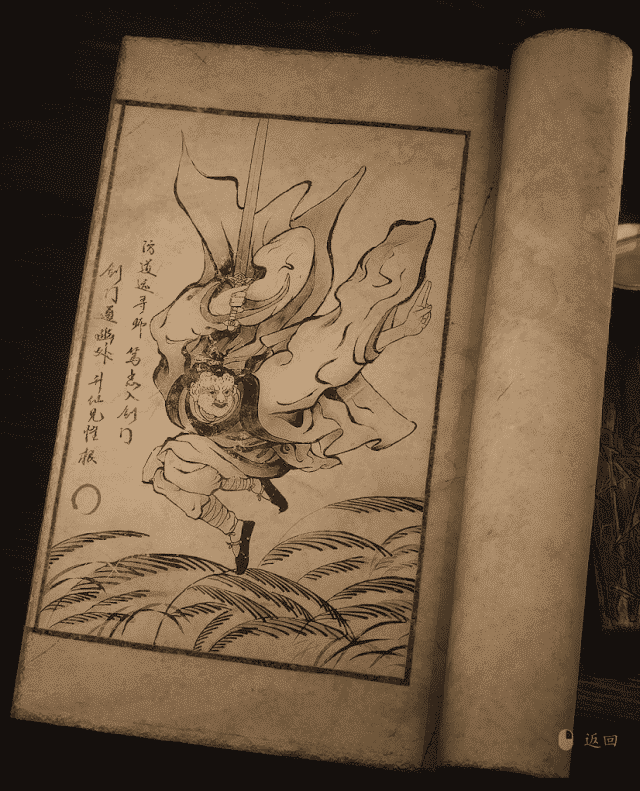 访道远寻师 笃志入剑门
剑门通幽处 升仙见性根
返回